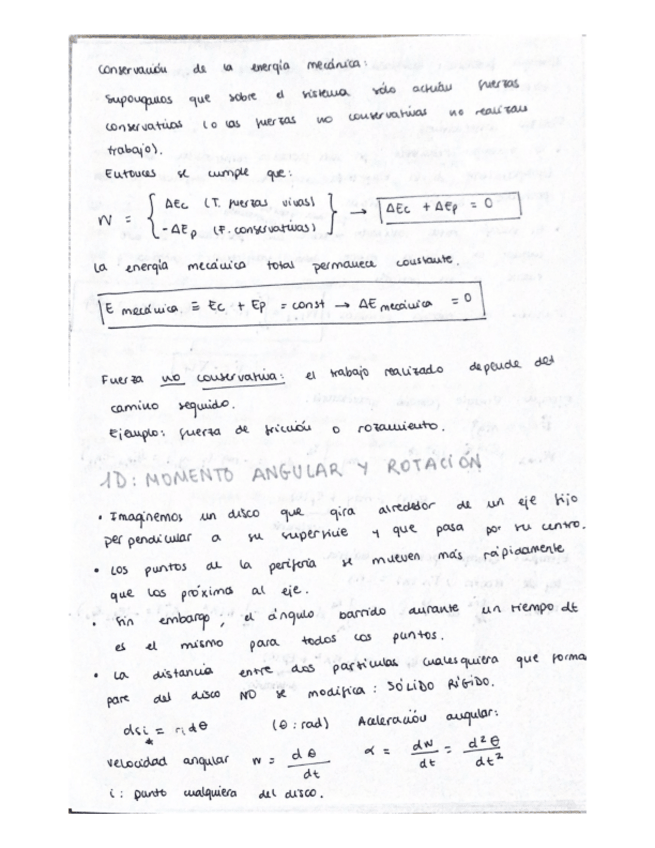 Conservación de la energía mecánica:
Supongamos que sobre el sistema sólo actúan fuerzas
conservativas (o las fuerzas no conservativas no realizan
trabajo).
Entonces se cumple que:
W = { ΔEc (T. fuerzas vivas)
-ΔEp (F. conservativas) } → ΔEc + ΔEp = 0
La energía mecánica total permanece constante.
E mecánica ≡ Ec + Ep = const → ΔE mecánica = 0
Fuerza no conservativa: el trabajo realizado depende del
camino seguido.
Ejemplo: fuerza de fricción o rozamiento.
1D: MOMENTO ANGULAR Y ROTACIÓN
• Imaginemos un disco que gira alrededor de un eje fijo
perpendicular a su superficie y que pasa por su centro.
• Los puntos de la periferia se mueven más rápidamente
que los próximos al eje.
• Sin embargo, el ángulo barrido durante un tiempo dt
es el mismo para todos los puntos.
• La distancia entre dos partículas cualesquiera que forma
pare del disco NO se modifica: SÓLIDO RÍGIDO.
dsi = ri dθ (θ: rad) Aceleración angular:
*
velocidad angular w = dθ/dt α = dw/dt = d²θ/dt²
i: punto cualquiera del disco.